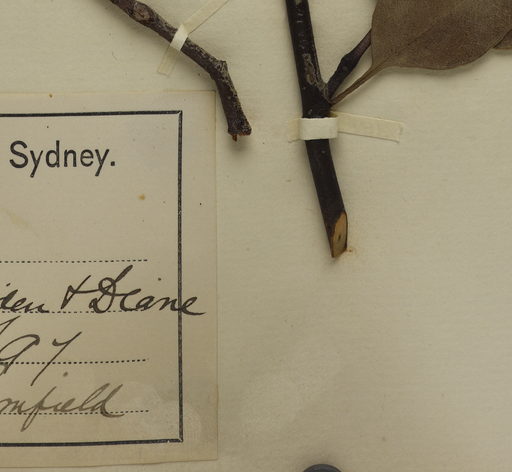 Sydney.
iden & Deane
/97
omfield